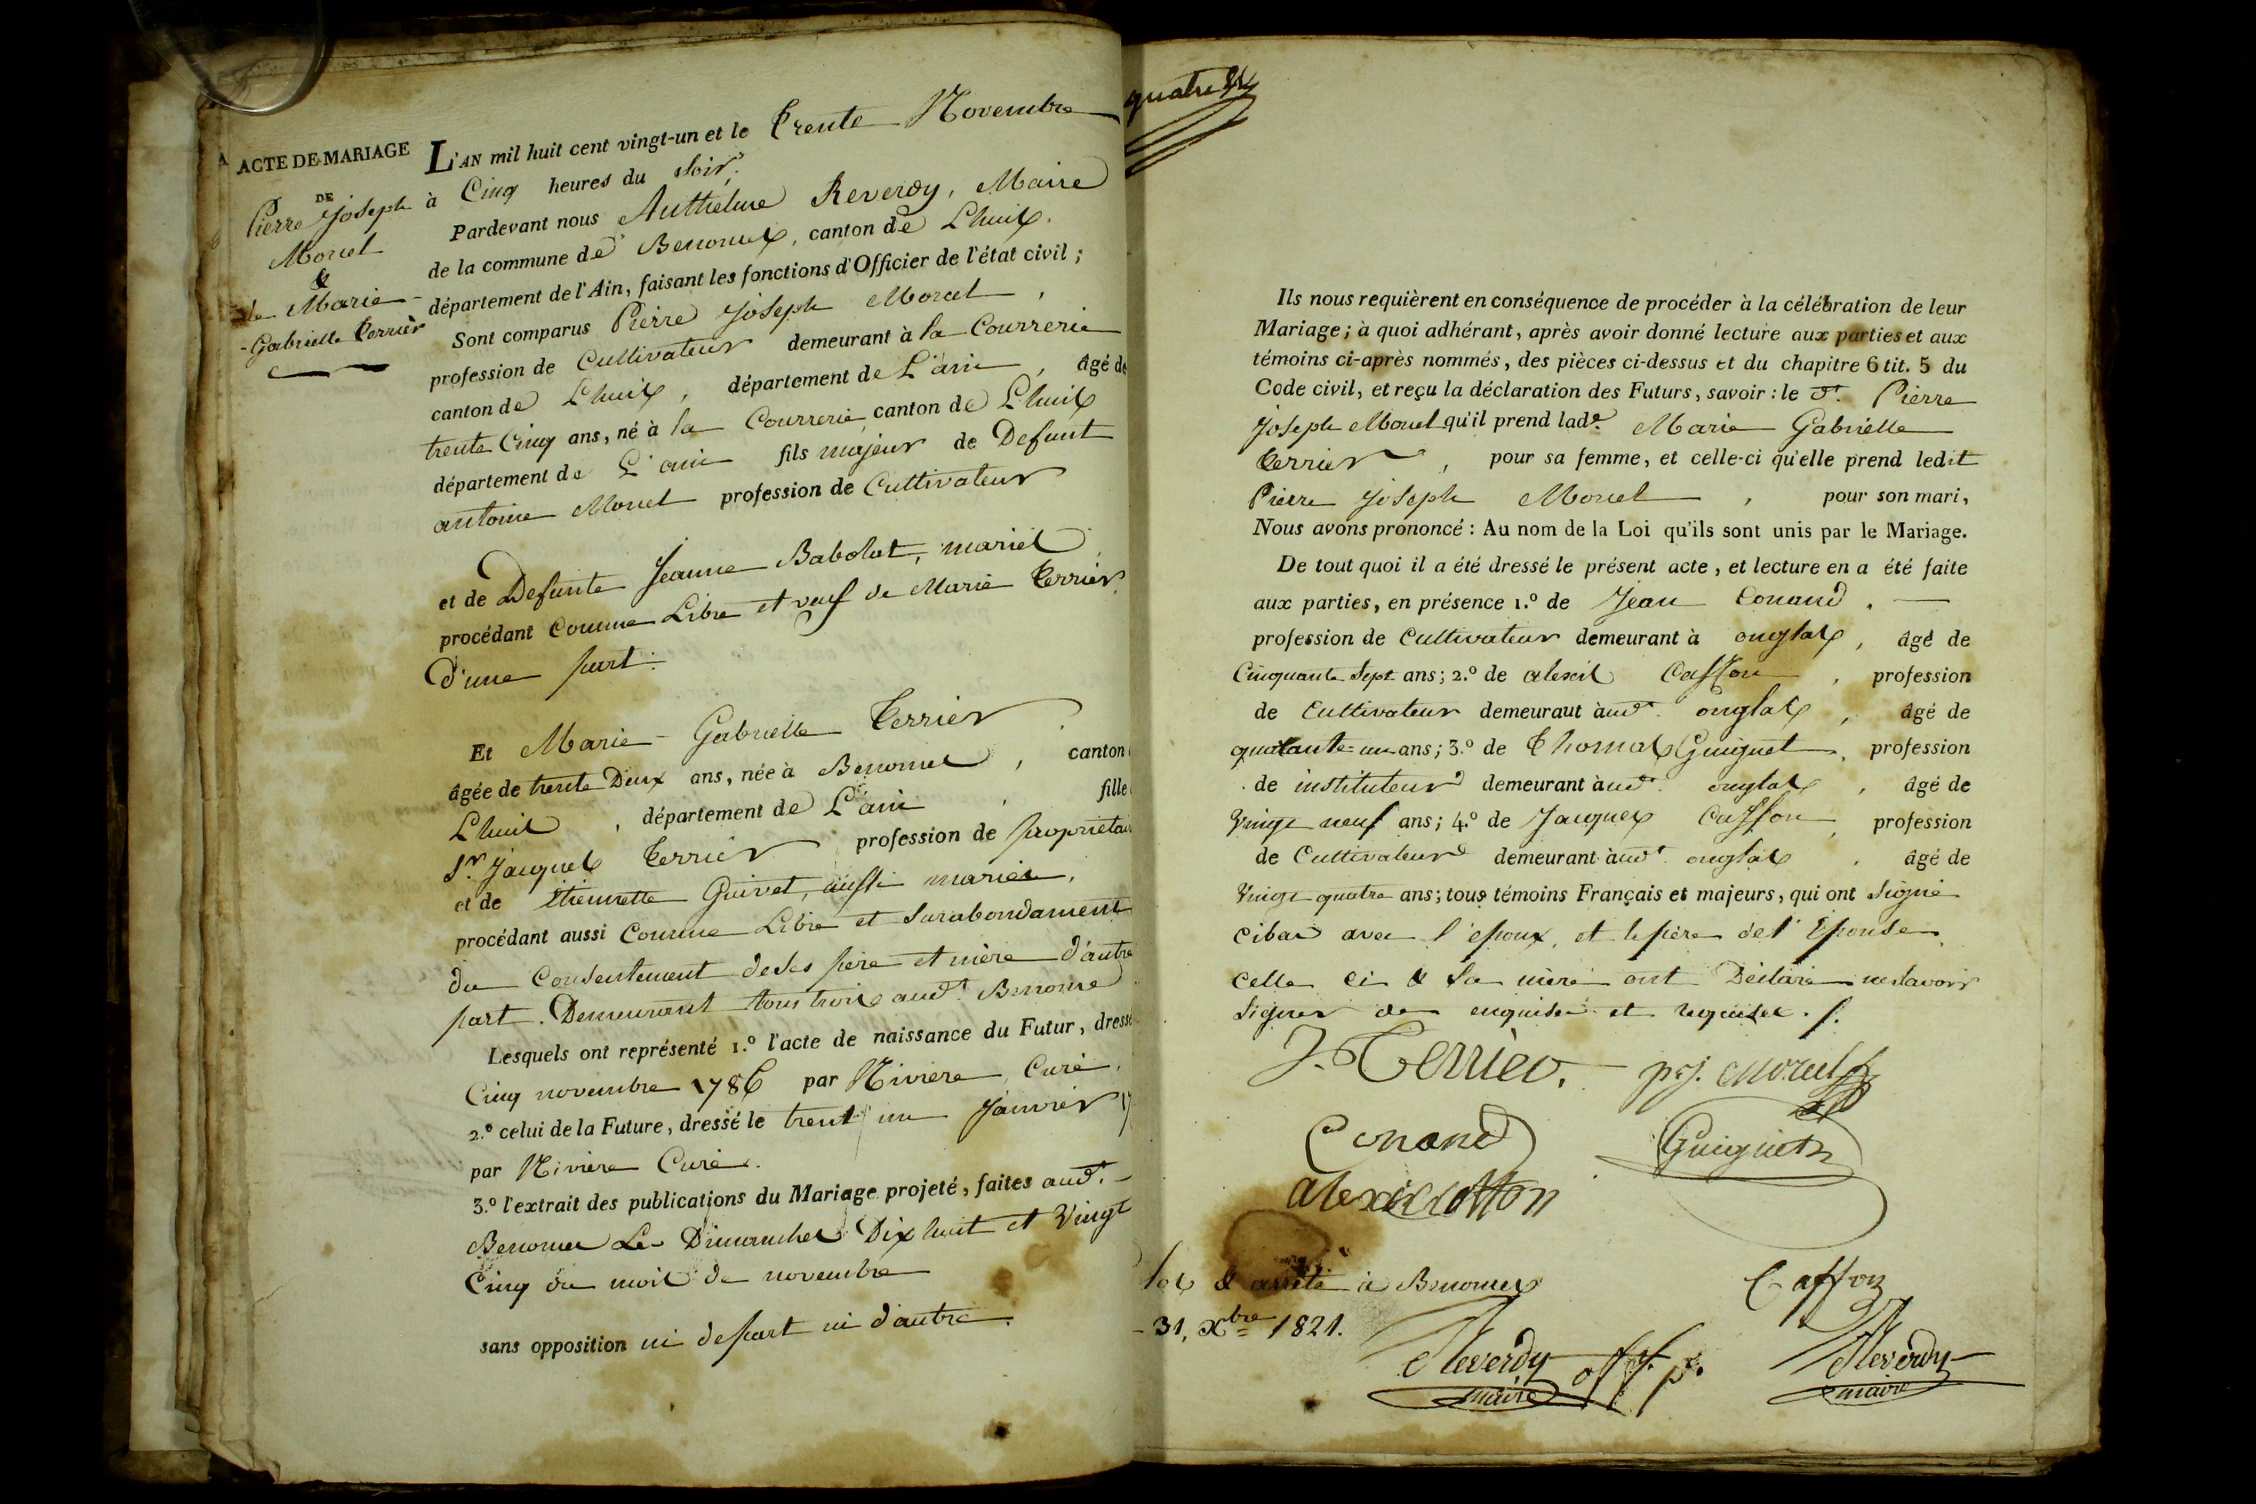 ACTE DE MARIAGE
DE
Pierre Joseph
Morel
&
de Marie-
Gabrielle Terrier
L'AN mil huit cent vingt-un et le trente Novembre
à Cinq heures du Soir,
Pardevant nous Anthelme Reverdy, Maire
de la commune de Benonces, canton de Lhuis.
département de l'Ain, faisant les fonctions d'Officier de l'état civil ;
Sont comparus Pierre Joseph Morel ,
profession de Cultivateur demeurant à la Courrerie
canton de Lhuis , département de L'ain , âgé de
trente Cinq ans, né à la Courrerie canton de Lhuis
département de L'ain fils majeur de Defunt
antoine Morel profession de Cultivateur
et de Defunte Jeanne Babolat, mariés
procédant Comme Libre et veuf de Marie Terrier,
D'une part.
Et Marie-Gabrielle Terrier ,
âgée de trente Deux ans, née à Benonces , canton
Lhuis , département de L'ain , fille
Sr. Jacques Terrier profession de propriétai
et de Etiennette Guivet, aussi mariés,
procédant aussi Comme Libre et Surabondament
du Consentement de ses père et mère d'autre
part. Demeurant tous trois aud.t Benonce
Lesquels ont représenté 1.º l'acte de naissance du Futur, dressé
Cinq novembre 1786 par Rivière Curé,
2.º celui de la Future, dressé le trent un Janvier 17
par Rivière Curé.
3.º l'extrait des publications du Mariage projeté, faites aud.t
Benonces Les Dimanches Dix huit et Vingt
Cinq du mois de novembre
sans opposition ni de part ni d'autre.
quatre
Ils nous requièrent en conséquence de procéder à la célébration de leur
Mariage ; à quoi adhérant, après avoir donné lecture aux parties et aux
témoins ci-après nommés, des pièces ci-dessus et du chapitre 6 tit. 5 du
Code civil, et reçu la déclaration des Futurs, savoir : le d.t Pierre
Joseph Morel qu'il prend lad.e Marie Gabrielle
Terrier , pour sa femme, et celle-ci qu'elle prend ledit
Pierre Joseph Morel , pour son mari,
Nous avons prononcé : Au nom de la Loi qu'ils sont unis par le Mariage.
De tout quoi il a été dressé le présent acte, et lecture en a été faite
aux parties, en présence 1.º de Jean Conand .
profession de Cultivateur demeurant à onglas , âgé de
Cinquante Sept ans ; 2.º de alexis Caffon , profession
de Cultivateur demeuraut à aud.t onglas , âgé de
quarante-un ans ; 3.º de Thomas Guiguet , profession
de instituteur demeurant à aud.t onglas , âgé de
Vingt neuf ans ; 4.º de Jacques Caffon , profession
de Cultivateur demeurant à aud.t onglas , âgé de
Vingt quatre ans ; tous témoins Français et majeurs, qui ont Signé
cibas avec l'epoux, et le père de l'Epouse,
celle ci & Sa mère ont Déclaré ne savoir
Signer de enquises et requises. /.
J. Terrier. p.j. morel
Conand Guiguet
alexis caffon
Caffon
Clos & arrêté à Benonces
31, Xbre 1821.
Reverdy off. p.
maire
Reverdy
maire